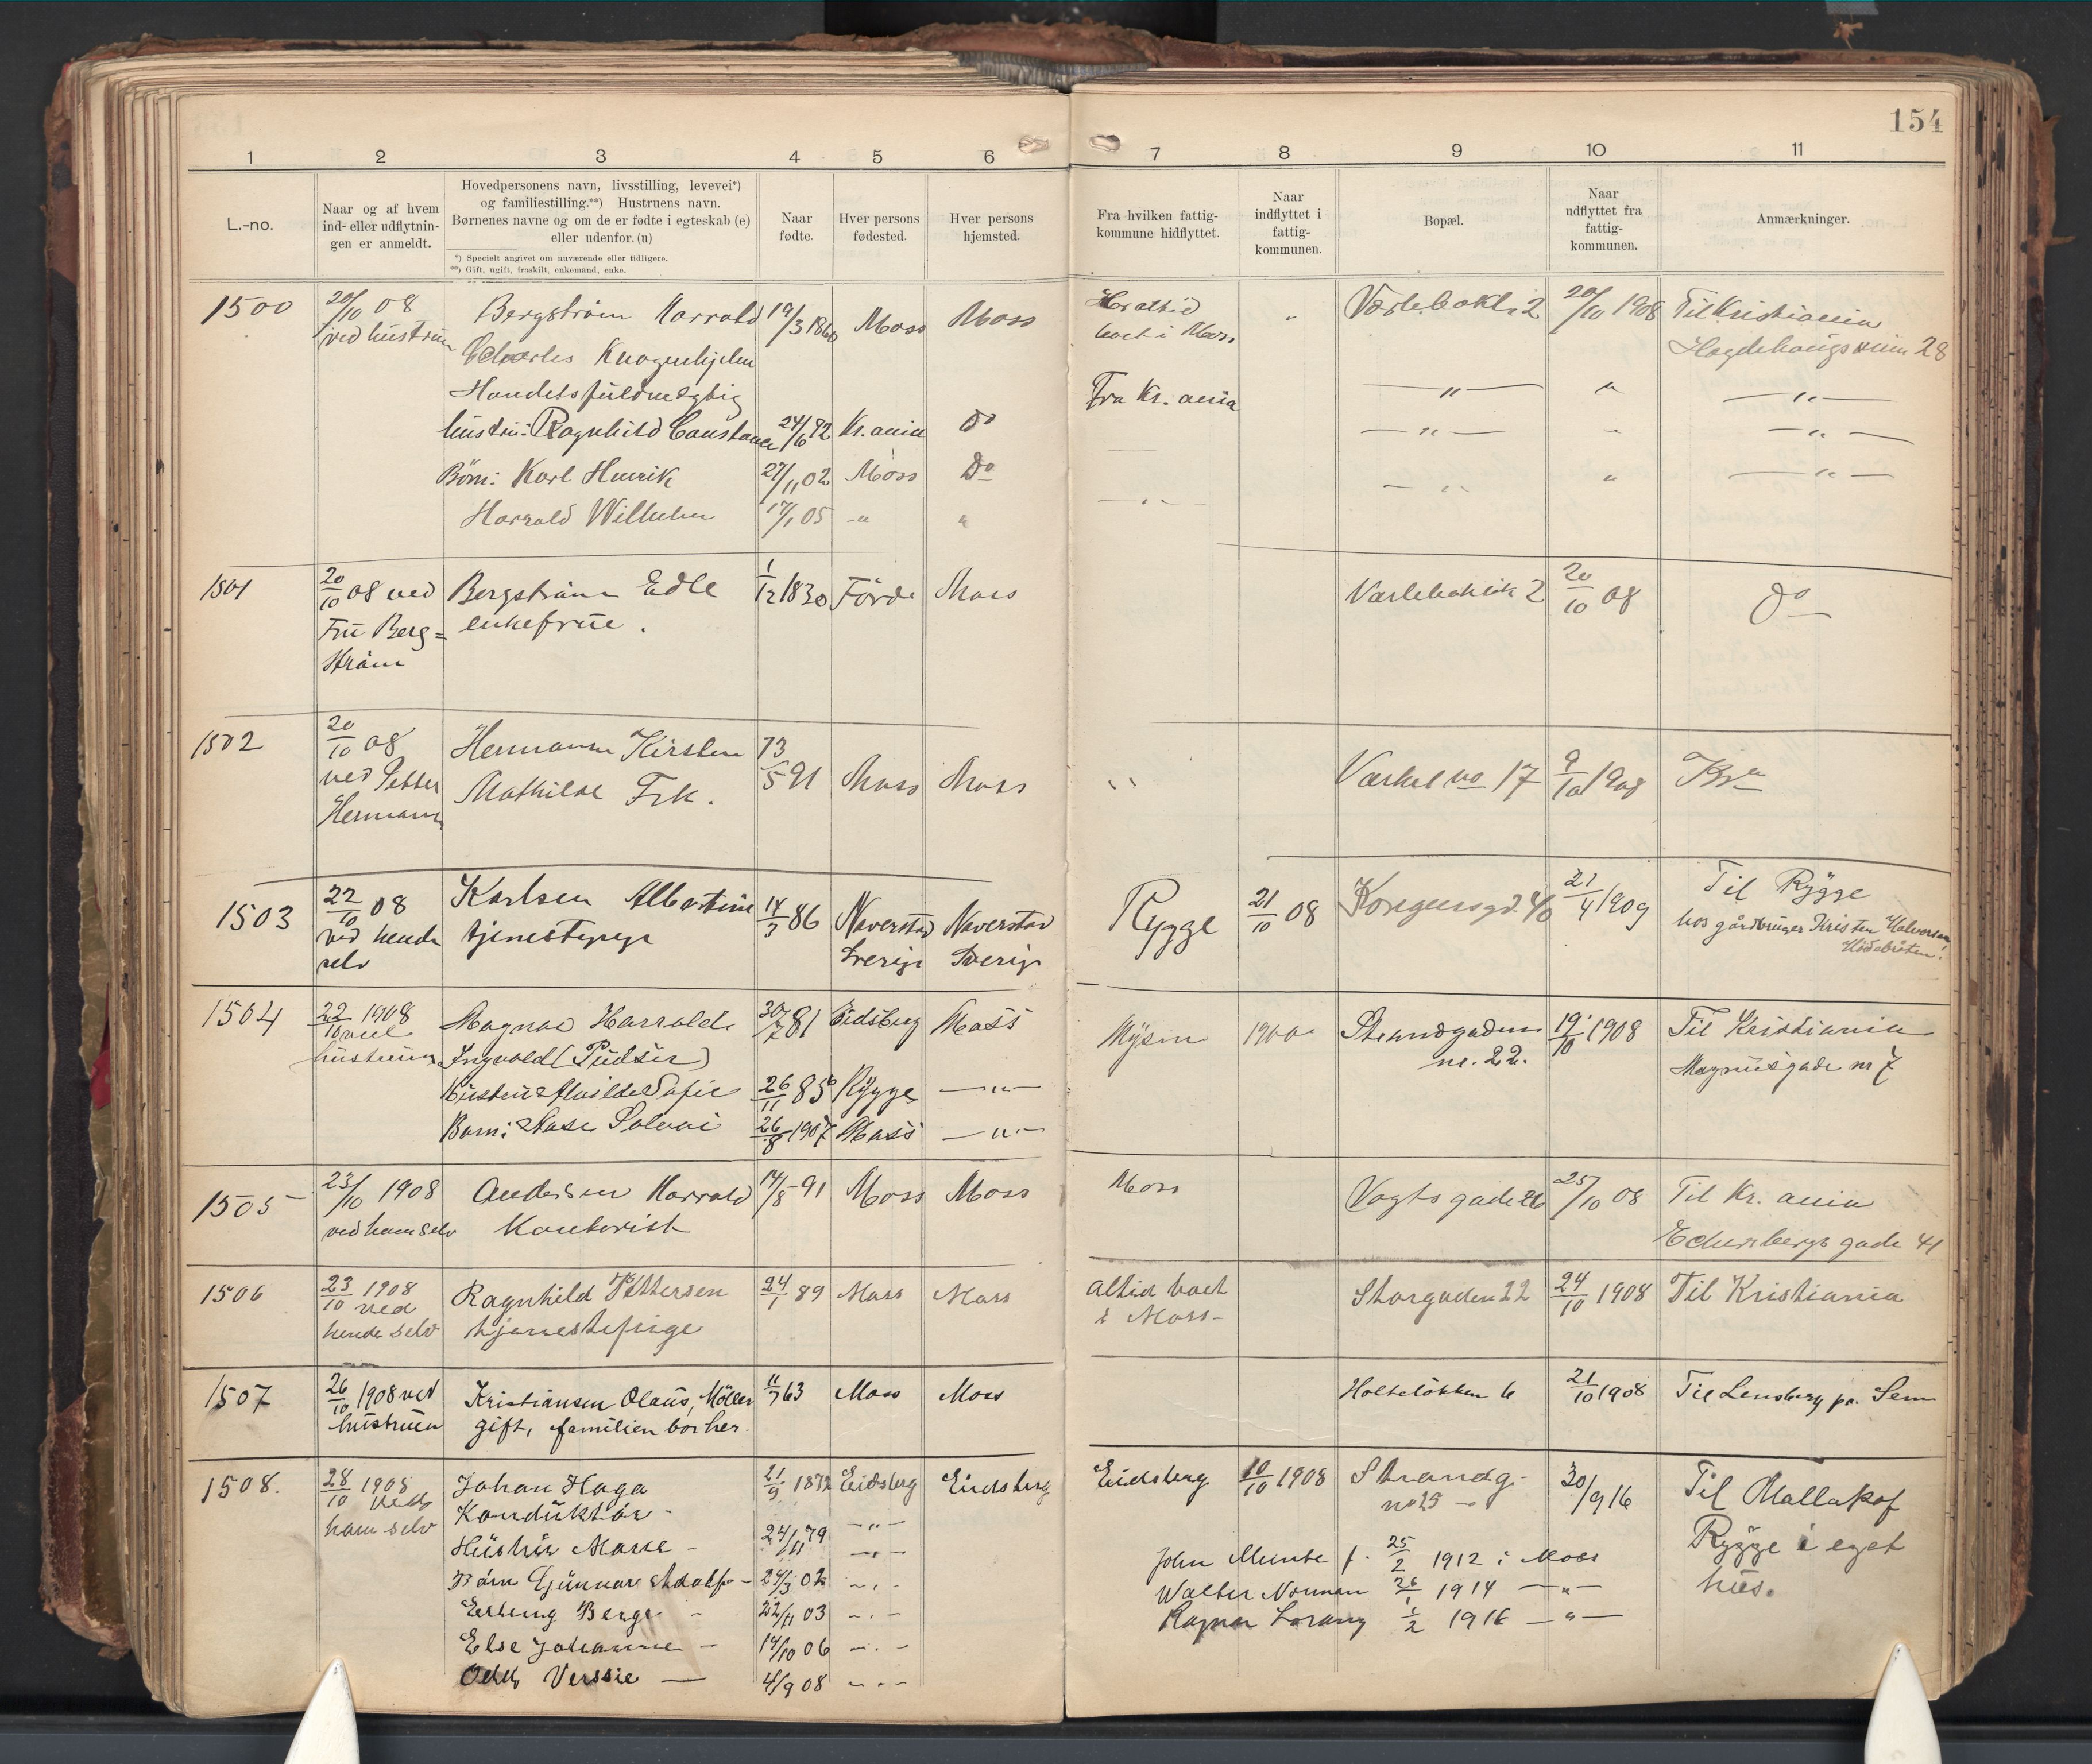 154
1 2 3 4 5 6 7 8 9 10 11
L.-no.
Naar og af hvem
ind- eller udflytnin-
gen er anmeldt.
Hovedpersonens navn, livsstilling, levevei*)
og familiestilling.**) Hustruens navn.
Børnenes navne og om de er fødte i egteskab (e)
eller udenfor. (u)
*) Specielt angivet om nuværende eller tidligere.
**) Gift, ugift, fraskilt, enkemand, enke.
Naar
fødte.
Hver persons
fødested.
Hver persons
hjemsted.
Fra hvilken fattig-
kommune hidflyttet.
Naar
indflyttet i
fattig-
kommunen.
Bopæl.
Naar
udflyttet fra
fattig-
kommunen.
Anmærkninger.
1500 20/10 08 Bergström Harrald 19/3 1860 Moss Moss Har altid " 2 20/10 1908 Til Kristiania
ved hustruen Charles boet i Moss 28
Handelsfuldmegtig Fra Kr.ania — " — " — " —
hustru: Ragnhild 24/6 72 Kr.ania Do — " — " — " —
Börn: Karl Henrik 27/11 02 Moss Do — " — " — " —
Harrald Wilhelm 17/1 05 - " "
1501 20/10 08 ved Bergström Edle 1/12 1830 Förde Moss 2 20/10 08 Do
Fru Berg= enkefrue.
ström
1502 20/10 08 Hermansen Kirsten 13/5 91 Moss Moss " no 17 9/10 1908
ved Petter Mathilde Frk.
Hermansen
1503 22/10 08 Karlsen Albertine 14/3 86 Naverstad Naverstad Rygge 21/10 08 Kongensgd. 40 21/4 1909 Til Rygge
ved hende tjenestepige Sverige Sverige hos gårdbruger Kristen Halvorsen
selv
1504 22/10 1908 Magnus Harrald 30/7 81 Eidsberg Moss Mysen 1900 Strandgaden 19/10 1908 Til Kristiania
ved
hustruen Ingvald (Pudser) nr. 22. Magnusgade nr 7
Hustru Sofie 26/11 85 Rygge — " —
Barn: Aase Solvei 26/8 1907 Moss — " —
1505 23/10 1908 Andersen Harrald 14/8 91 Moss Moss Moss Vogtsgade 26 25/10 08 Til Kr.ania
ved ham selv Kontorist gade 41
1506 23/10 1908 Ragnhild Pettersen 24/1 89 Moss Moss Altid boet Storgaden 22 24/10 1908 Til Kristiania
ved
hende selv tjenestepige i Moss-
1507 26/10 1908 ved Kristiansen Olaus, Möller 11/7 63 Moss Moss Holteløkken 6 21/10 1908 Til Lensberg pr. Sem
hustruen gift, familien bor her.
1508. 28/10 1908 Johan Haga 21/9 1872 Eidsberg Eidsberg Eidsberg 10/10 1908 Strandg- 30/9 16 Til
ved Konduktör - no 25 -
ham selv
Hustru Marie - 24/11 79 - " - Rygge i eget
Börn Gunnar Adolf - 24/3 02 - " - hus.
Erling Berge - 22/11 03 - " -
Else Johanne - 14/10 06 - " -
Odd — 4/9 08 - " -
John f. 25/2 1912 i Moss
Walter Norman 26/1 1914 — " —
Ragnar 1/2 1916 — " —